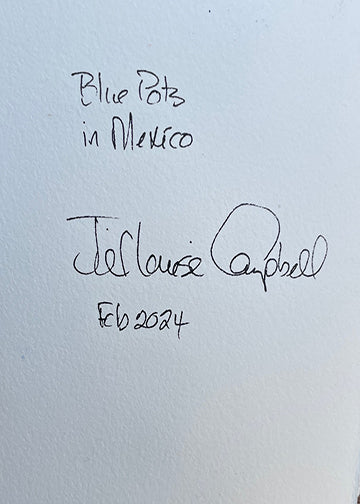 Blue Pots
in Mexico
Jill Louise Campbell
Feb 2024